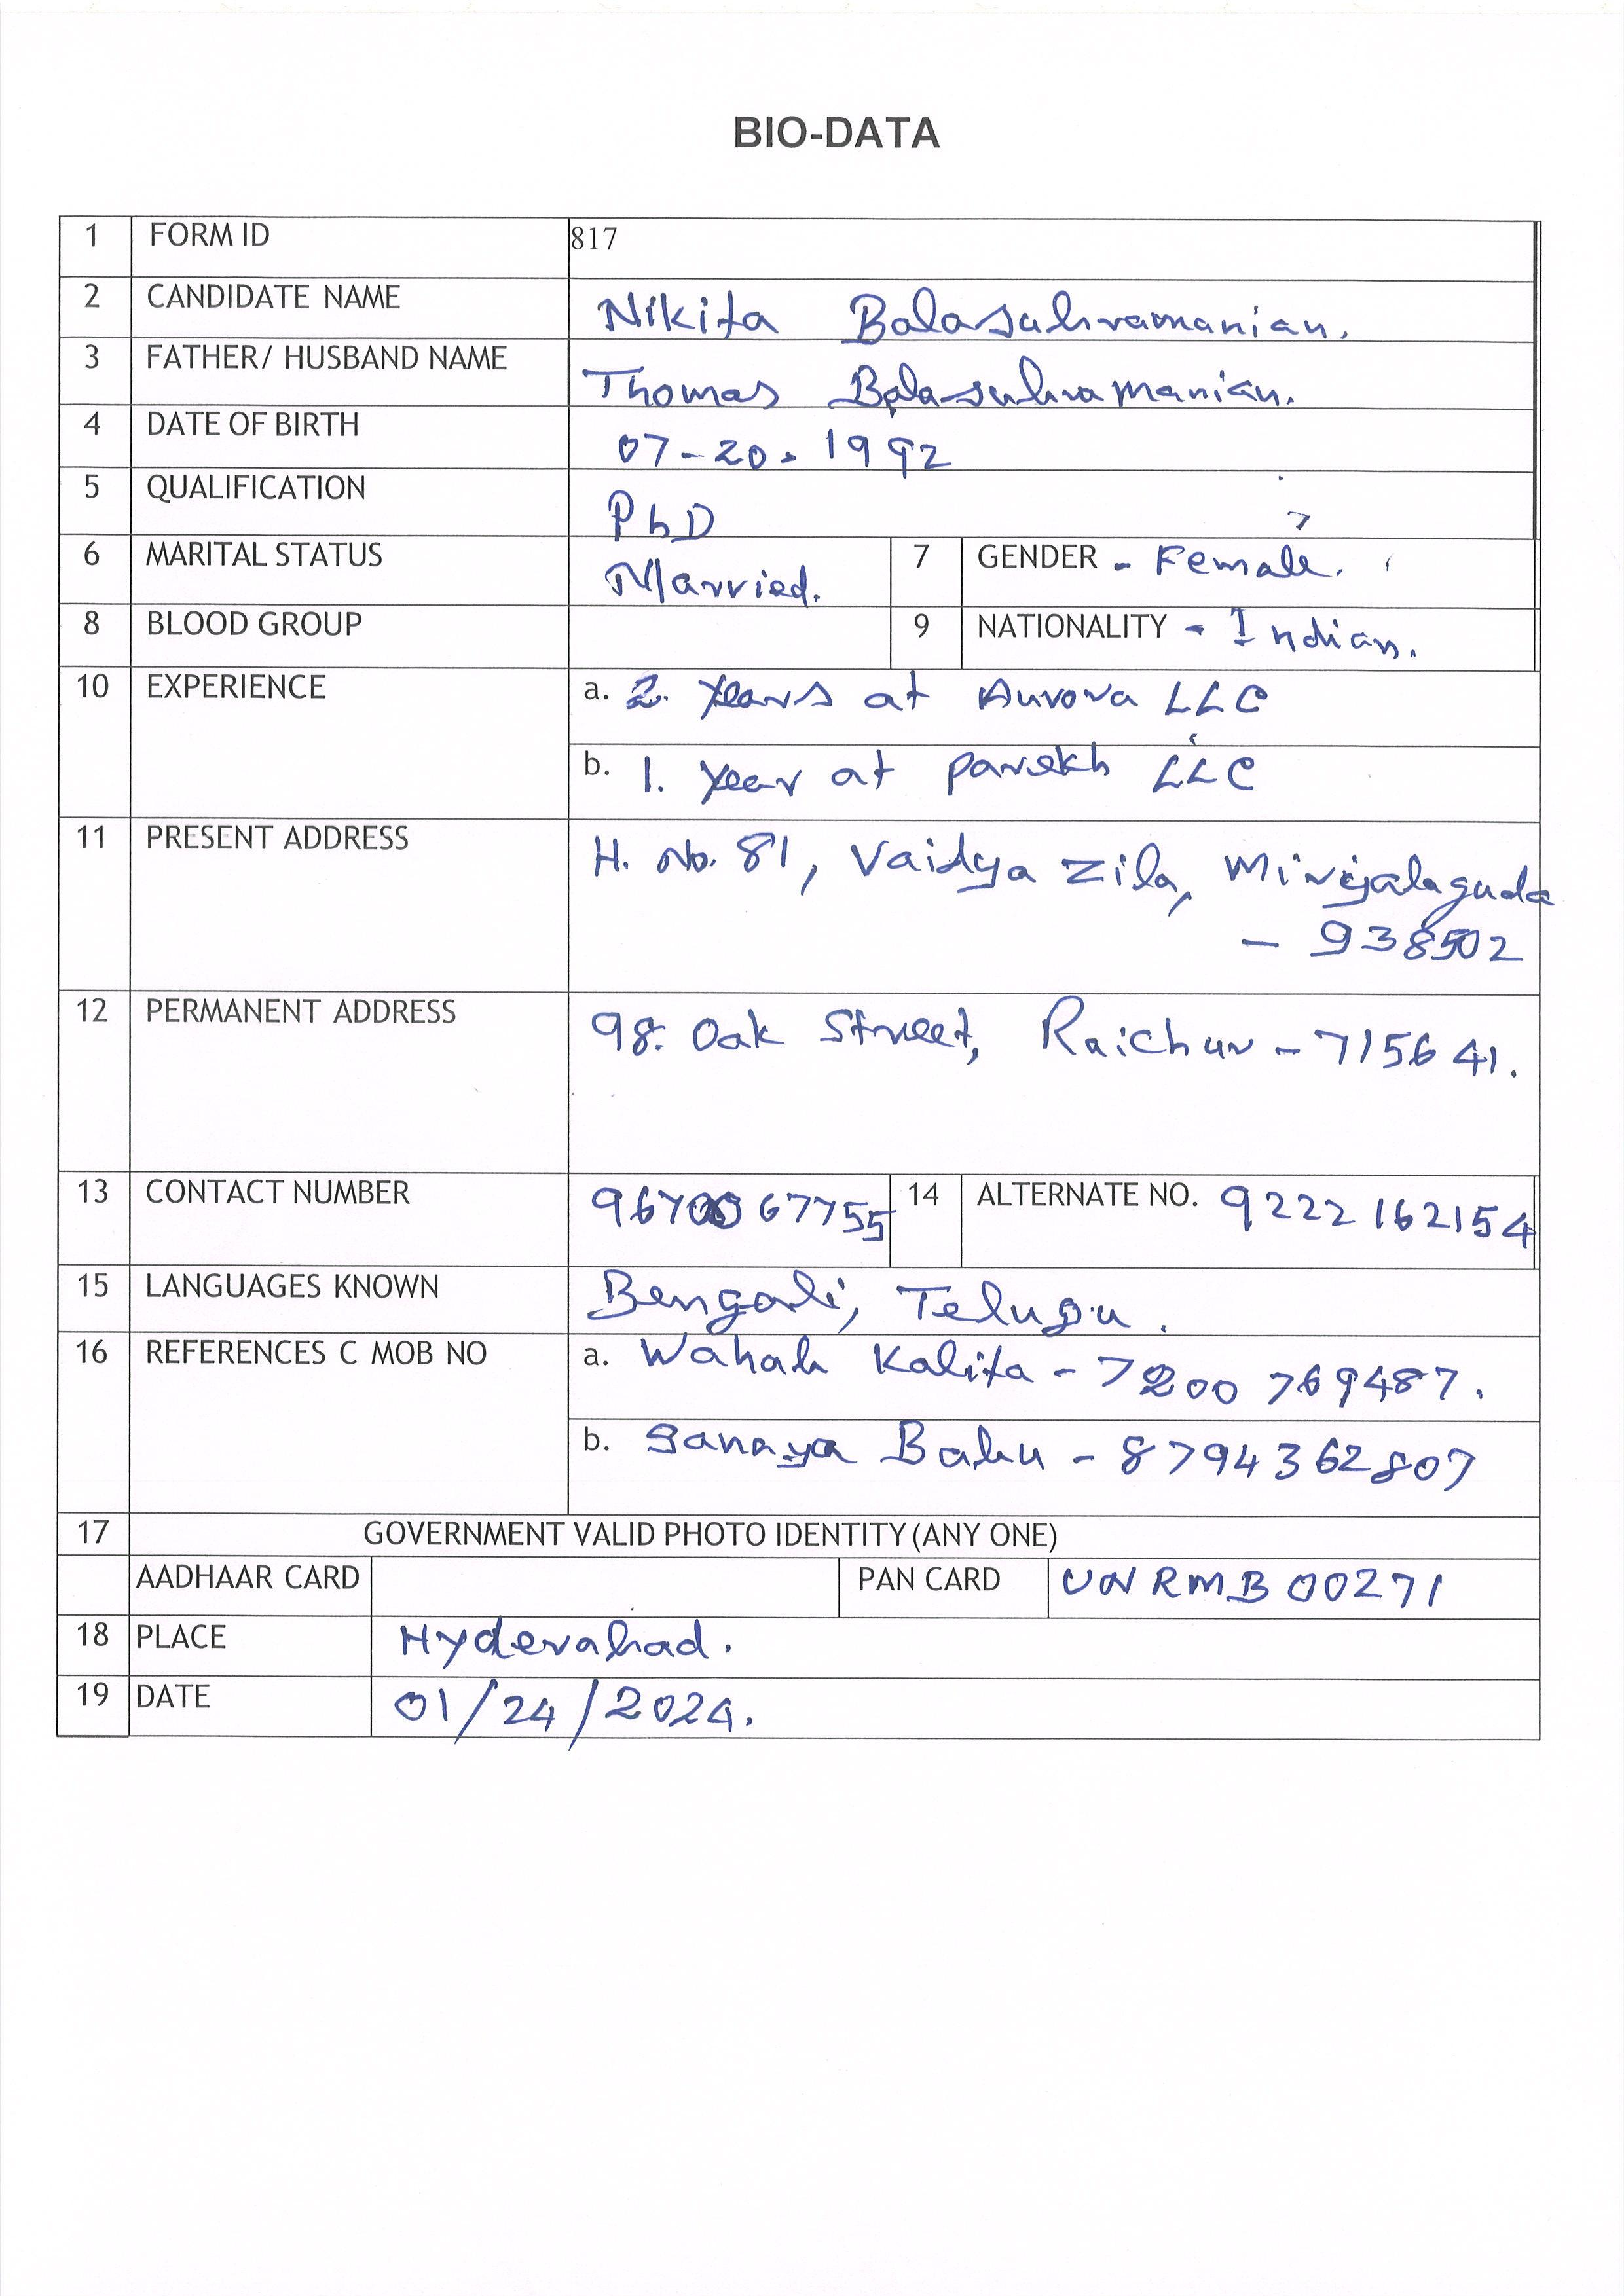 BIO-DATA
1 FORM ID 817
2 CANDIDATE NAME Nikita Balasubramanian.
3 FATHER/ HUSBAND NAME Thomas Balasubramanian.
4 DATE OF BIRTH 07-20-1992
5 QUALIFICATION PhD
6 MARITAL STATUS Married. 7 GENDER - Female.
8 BLOOD GROUP 9 NATIONALITY - Indian.
10 EXPERIENCE a. 2. Years at Aurora LLC
b. 1. Year at Parekh LLC
11 PRESENT ADDRESS H. No. 81, Vaidya Zila, Miryalaguda
- 938502
12 PERMANENT ADDRESS 98. Oak Street, Raichur - 715641.
13 CONTACT NUMBER 9670067755 14 ALTERNATE NO. 9222162154
15 LANGUAGES KNOWN Bengali, Telugu.
16 REFERENCES C MOB NO a. Wahab Kalita - 7200769487.
b. Sanaya Babu - 8794362807
17 GOVERNMENT VALID PHOTO IDENTITY (ANY ONE)
AADHAAR CARD PAN CARD UNRMB00271
18 PLACE Hyderabad.
19 DATE 01/24/2024.